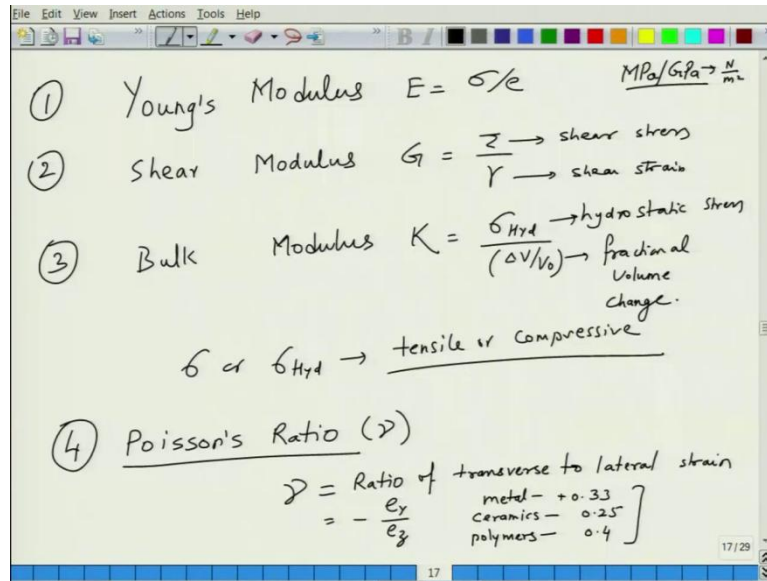 File Edit View Insert Actions Tools Help
① Young's Modulus E = σ/e MPa/GPa → N/m²
② Shear Modulus G = τ/γ → shear stress
→ shear strain
③ Bulk Modulus K = σHyd/(ΔV/V₀) → hydrostatic stress
→ fractional
volume
change.
σ or σHyd → tensile or compressive
④ Poisson's Ratio (ν)
ν = Ratio of transverse to lateral strain
= - eY/e3 metal - +0.33
ceramics - 0.25
polymers - 0.4
17/29
17